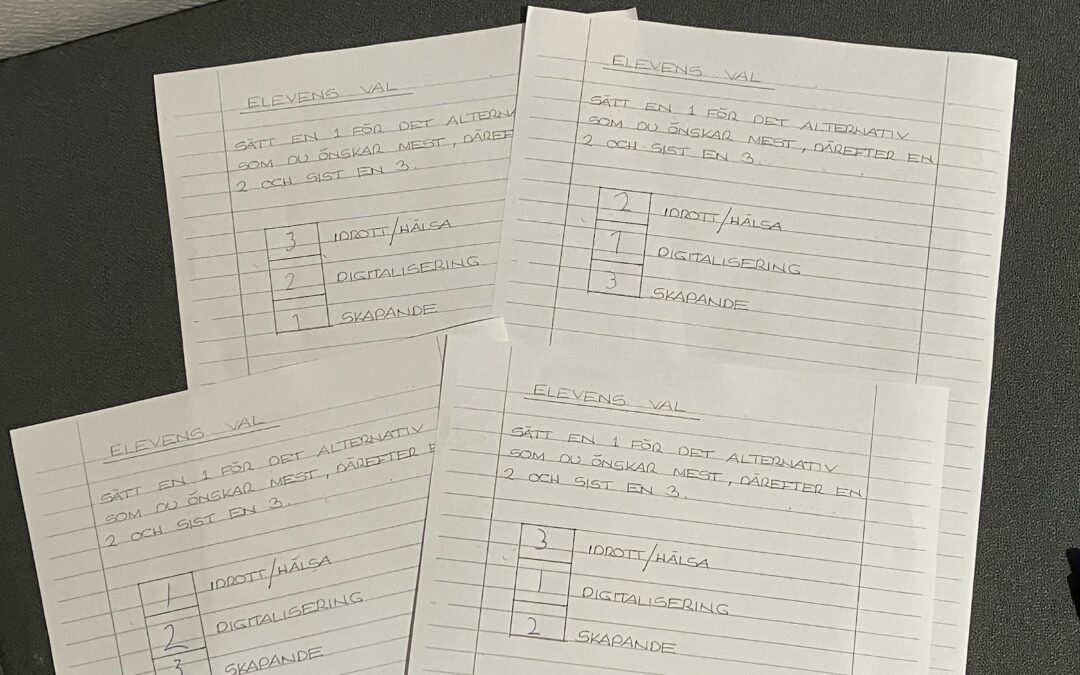 ELEVENS VAL
SÄTT EN 1 FÖR DET
SOM DU ÖNSKAR MEST,
2 OCH SIST EN 3.
3 IDROTT/HÄLSA
2 DIGITALISERING
1 SKAPANDE
ELEVENS VAL
SÄTT EN 1 FÖR DET ALTERNATIV
SOM DU ÖNSKAR MEST, DÄREFTER EN
2 OCH SIST EN 3.
2 IDROTT/HÄLSA
1 DIGITALISERING
3 SKAPANDE
ELEVENS VAL
SÄTT EN 1 FÖR DET ALTERNATIV
SOM DU ÖNSKAR MEST, DÄREFTER
2 OCH SIST EN 3.
1 IDROTT/HÄLSA
2 DIGITALISERING
3 SKAPANDE
ELEVENS VAL
SÄTT EN 1 FÖR DET ALTERNATIV
SOM DU ÖNSKAR MEST, DÄREFTER EN
2 OCH SIST EN 3.
3 IDROTT/HÄLSA
1 DIGITALISERING
2 SKAPANDE